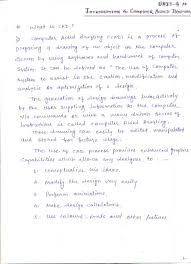 UNIT-4
INTRODUCTION to COMPUTER AIDED DRAFTING
* What is CAD?
Computer Aided Drafting (CAD) is a process of
preparing a drawing of an object on the computer
screen by using keyboard and hardwares of computer
system. It can be defined as "The use of Computer
system to assist in the creation, modification and
analysis to optimization of a design.
The generation of design drawings interactively
by the user supplying information to the computer
via commands or with a menu driven series of
instructions is called Computer Aided Drafting.
These drawing can easily be edited manipulated
and stored for future usage.
The use of CAD process provides enhanced graphics
capabilities which allows any designer to
1. Conceptualize his ideas,
2. Modify the design very easily
3. Perform animation,
4. Make design calculations,
5. Use colours, fonts and other features